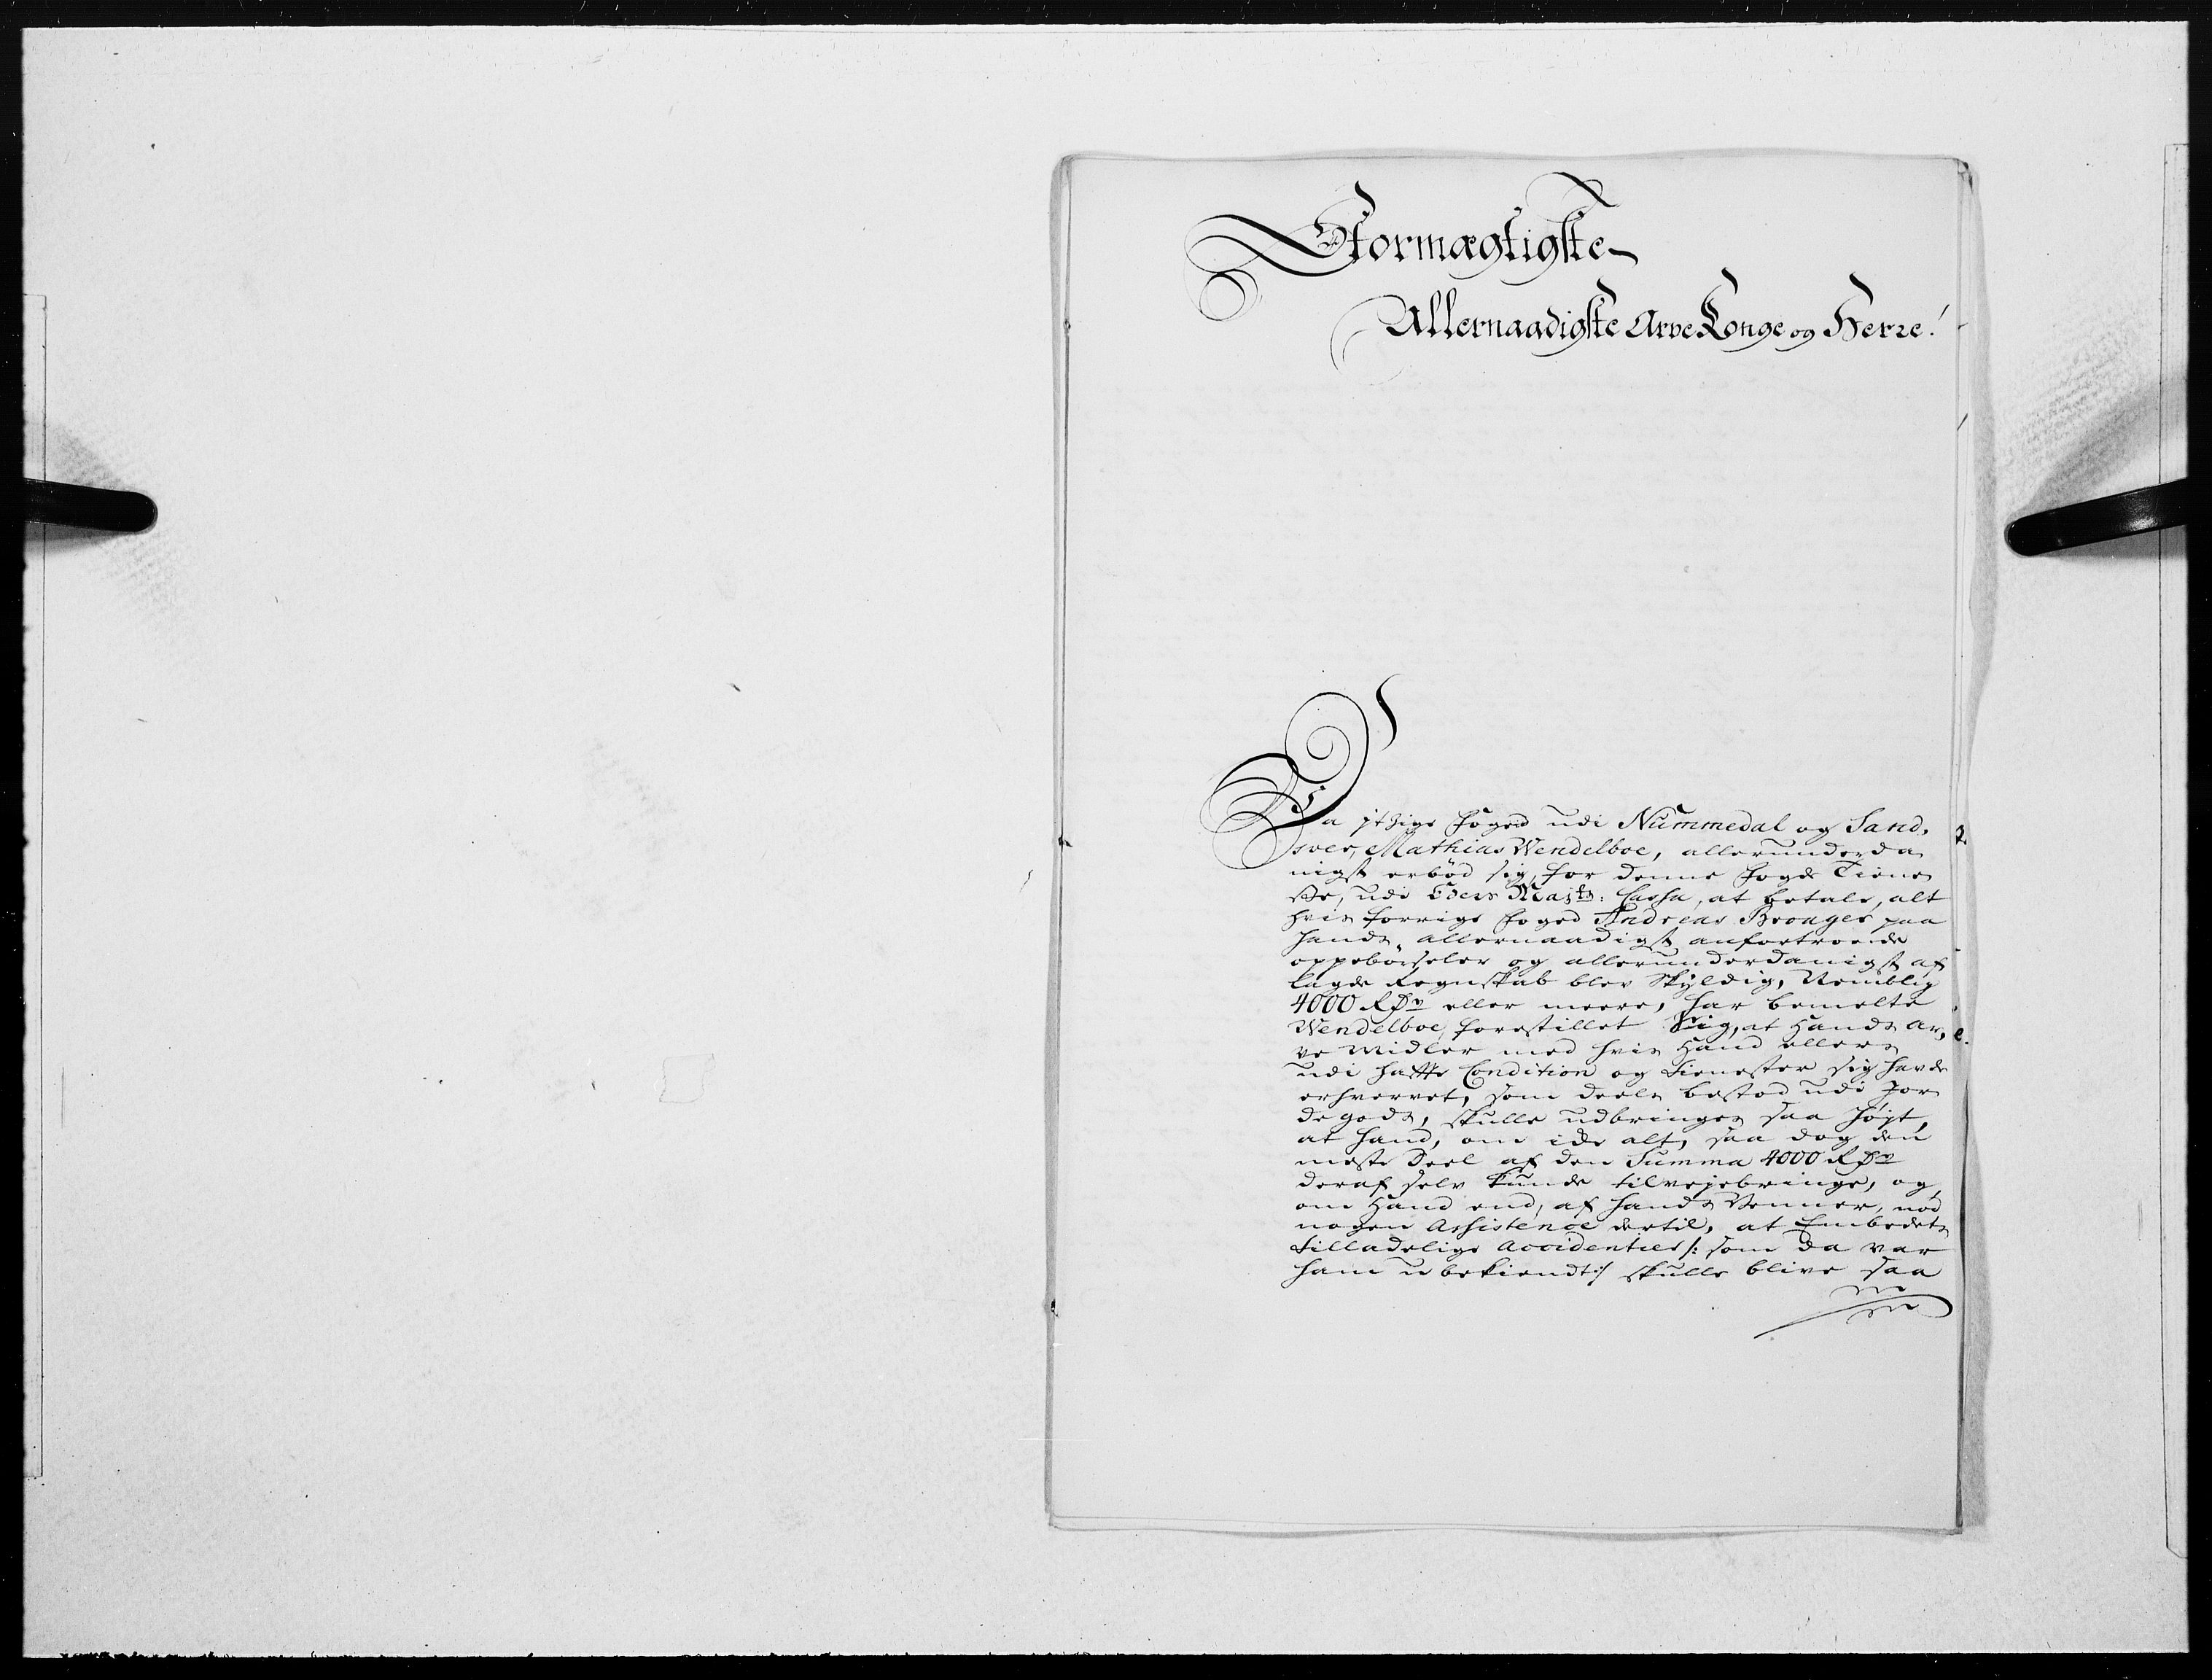 Stormægtigste
Allernaadigste Arve Konge og Herre!
Da itzige Foged udi Nummedal og Sand,
sver, Mathias Wendelboe, allerunderda
nigst erbød sig, for denne Fogde Tiene
ste, udi Eders Majts: Cassa, at betale, alt
hvis forrige Foged Andreas Bronger paa
hands allernaadigst anfortroede
oppebørseler og allerunderdanigst af
lagde Regnskab blev Skÿldig, Nemblig
4000 Rdr eller meere, har bemelte
Wendelboe, forestillet Sig, at hands Ar,
ve Midler med hvis Hand ellers
udi hafte Condition og Tienester sig havde
erhvervet, som deels bestod udi Jor
degods, skulle udbringes saa høyt,
at hand, om icke alt, saa dog den
meste Deel af den Summa 4000 Rdr
deraf selv kunde tilvejebringe, og
om Hand end, af hands Venner, nød
nogen Assistence dertil, at Embedets
tilladelige Accidentier /: som da var
ham ubekiendt :/ skulle blive saa